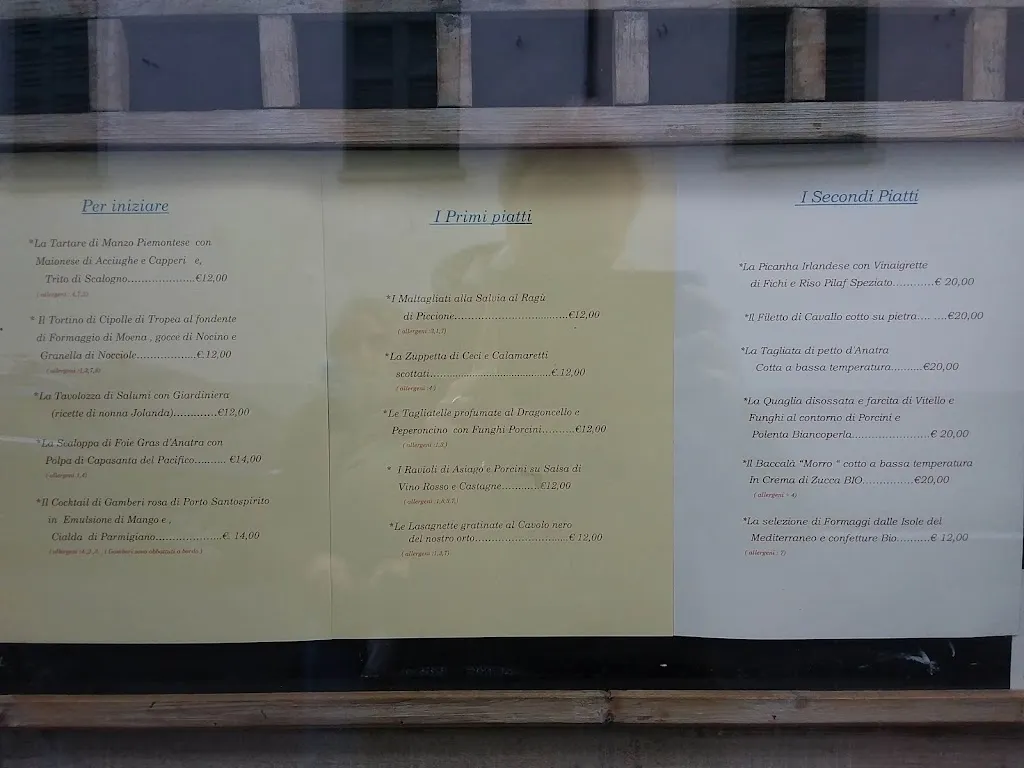 Per iniziare
*La Tartare di Manzo Piemontese con
Maionese di Acciughe e Capperi e,
Trito di Scalogno....................€12,00
* Il Tortino di Cipolle di Tropea al fondente
di Formaggio di Moena , gocce di Nocino e
Granella di Nocciole..................€.12,00
*La Tavolozza di Salumi con Giardiniera
(ricette di nonna Jolanda).............€12,00
*La Scaloppa di Foie Gras d'Anatra con
Polpa di Capasanta del Pacifico.......... €14,00
*Il Cocktail di Gamberi rosa di Porto Santospirito
in Emulsione di Mango e ,
Cialda di Parmigiano...................€. 14,00
I Primi piatti
*I Maltagliati alla Salvia al Ragù
di Piccione..................................€12,00
*La Zuppetta di Ceci e Calamaretti
scottati.............................................€.12,00
( allergeni :4 )
*Le Tagliatelle profumate al Dragoncello e
Peperoncino con Funghi Porcini..........€12,00
* I Ravioli di Asiago e Porcini su Salsa di
Vino Rosso e Castagne............€12,00
*Le Lasagnette gratinate al Cavolo nero
del nostro orto............................€ 12,00
( allergeni :1,3,7)
I Secondi Piatti
*La Picanha Irlandese con Vinaigrette
di Fichi e Riso Pilaf Speziato............€ 20,00
*Il Filetto di Cavallo cotto su pietra.... ....€20,00
*La Tagliata di petto d'Anatra
Cotta a bassa temperatura..........€20,00
*La Quaglia disossata e farcita di Vitello e
Funghi al contorno di Porcini e
Polenta Biancoperla.......................€ 20,00
*Il Baccalà "Morro " cotto a bassa temperatura
In Crema di Zucca BIO...............€20,00
( allergeni : 4)
*La selezione di Formaggi dalle Isole del
Mediterraneo e confetture Bio..........€ 12,00
( allergeni : 7)